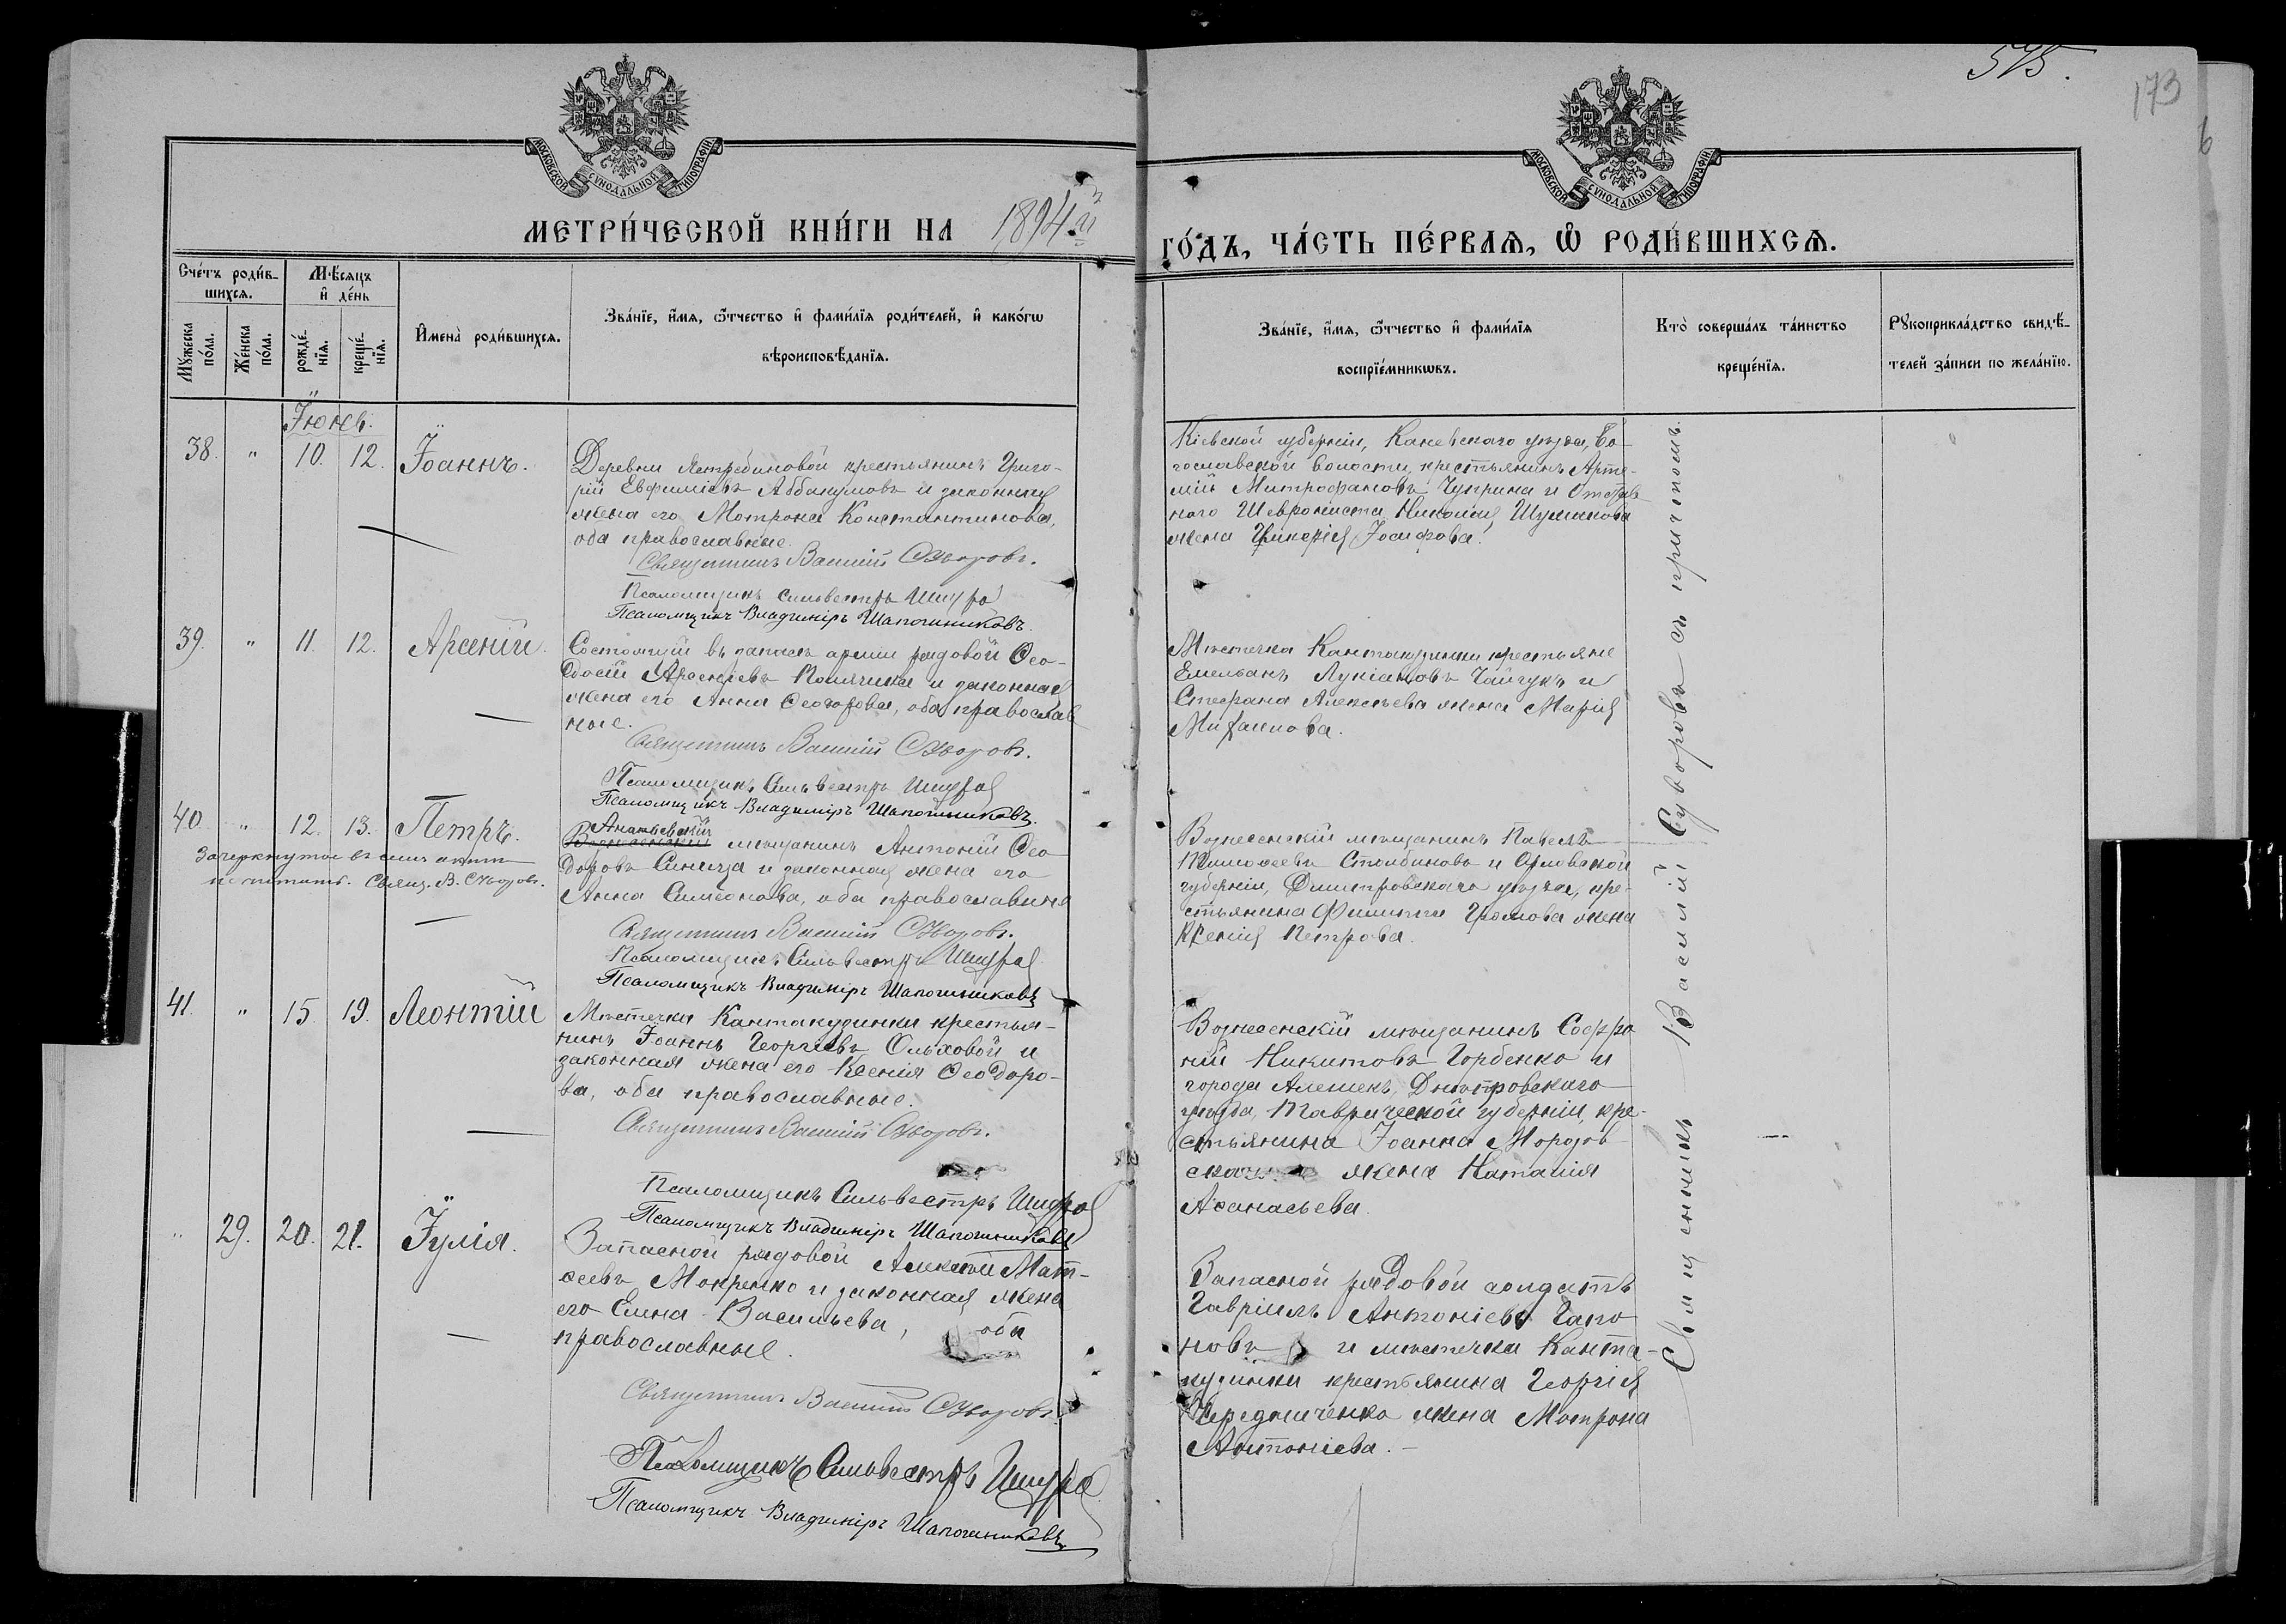 575.
173
МОСКОВСКОЙ СУНОДАЛЬНОЙ ТИПОГРАФІИ
МОСКОВСКОЙ СУНОДАЛЬНОЙ ТИПОГРАФІИ
МЕТРИ́ЧЕСКОЙ КНИ́ГИ НА 1894й
ГО́ДЪ, ЧА́СТЬ ПЕ́РВАѦ, Ѡ҆ РОДИ́ВШИХСѦ.
Сче́тъ роди́в-
шихсѧ.
Мꙋ́жеска по́ла.
Же́нска по́ла.
Мѣ́сѧцъ и҆ де́нь
рожде́-нїѧ.
креще́-нїѧ.
И҆мена̀ роди́вшихсѧ.
Зва́нїе, и҆́мѧ, ѻ҆́тчество и҆ фами́лїѧ роди́телей, и҆ како́гѡ
вѣроисповѣ́данїѧ.
Зва́нїе, и҆́мѧ, ѻ҆́тчество и҆ фами́лїѧ
воспрїе́мникѡвъ.
Кто̀ соверша́лъ та́инство
креще́нїѧ.
Рꙋкоприкла́дство свидѣ́-
телей за́писи по жела́нїю.
Іюнь.
38. " 10. 12. Іоаннъ.
Деревни Ястребиновой крестьянинъ Григо-
рій Евфиміевъ Аввакумовъ и законная
жена его Мотрона Константинова,
оба православные.
Священникъ Василій Суворовъ.
Псаломщикъ Сильвестръ
Псаломщикъ Владиміръ Шапошниковъ.
Кіевской губерніи, Каневскаго уѣзда, Бо-
гославской волости, крестьянинъ Арте-
мій Митрофановъ Чуприна и Отстав-
наго Шеврониста Николая Шумакова
жена Гликерія Іосифова.
39. " 11. 12. Арсеній.
Состоящій въ запасѣ арміи рядовой Ѳео-
досій Арсеніевъ и законная
жена его Анна Ѳеодорова, оба православ
ные.
Священникъ Василій Суворовъ.
Псаломщикъ Сильвестръ
Псаломщикъ Владиміръ Шапошниковъ.
Мѣстечка Кантакузинки крестьяне
Емельянъ Лукіановъ Чайчукъ и
Стефана Алексѣева жена Марія
Михаилова.
40. " 12. 13. Петръ.
Зачеркнутое въ семъ актѣ
не читать. Свящ. В. Суворовъ.
Ананьевскій
Вознесенскій мѣщанинъ Антоній Ѳео
доровъ Синица и законная жена его
Анна Симеонова, оба православные
Священникъ Василій Суворовъ.
Псаломщикъ Сильвестръ
Псаломщикъ Владиміръ Шапошниковъ
Вознесенскій мѣщанинъ Павелъ
Тимоѳеевъ Столбиновъ и Орловской
губерніи, Димитровскаго уѣзда, кре-
стьянина Филиппа Громова жена
Ксенія Петрова.
41. " 15. 19. Леонтій
Мѣстечка Кантакузинки крестья-
нинъ Іоаннъ Георгіевъ Ольховой и
законная жена его Ксенія Ѳеодоро-
ва, оба православные.
Священникъ Василій Суворовъ.
Псаломщикъ Сильвестръ
Псаломщикъ Владиміръ Шапошниковъ
Вознесенскій мѣщанинъ Софро
ній Никитовъ Горбенко и
города Алешекъ, Днѣпровскаго
уѣзда, Таврической губерніи, кре-
стьянина Іоанна Морозов
скаго жена Наталія
Аѳанасьева.
" 29. 20. 21. Іулія.
Запасной рядовой Алексѣй Мат-
ѳеевъ Мокренко и законная жена
его Елена Васильева, оба
православные.
Священникъ Василій Суворовъ.
Псаломщикъ Сильвестръ
Псаломщикъ Владиміръ Шапошниковъ
Запасной рядовой солдатъ
Гавріилъ Антоніевъ Гапо
новъ и мѣстечка Канта-
кузинки крестьянина Георгія
Чередниченко жена Мотрона
Антоніева.
Священникъ Василій Суворовъ съ причтомъ.